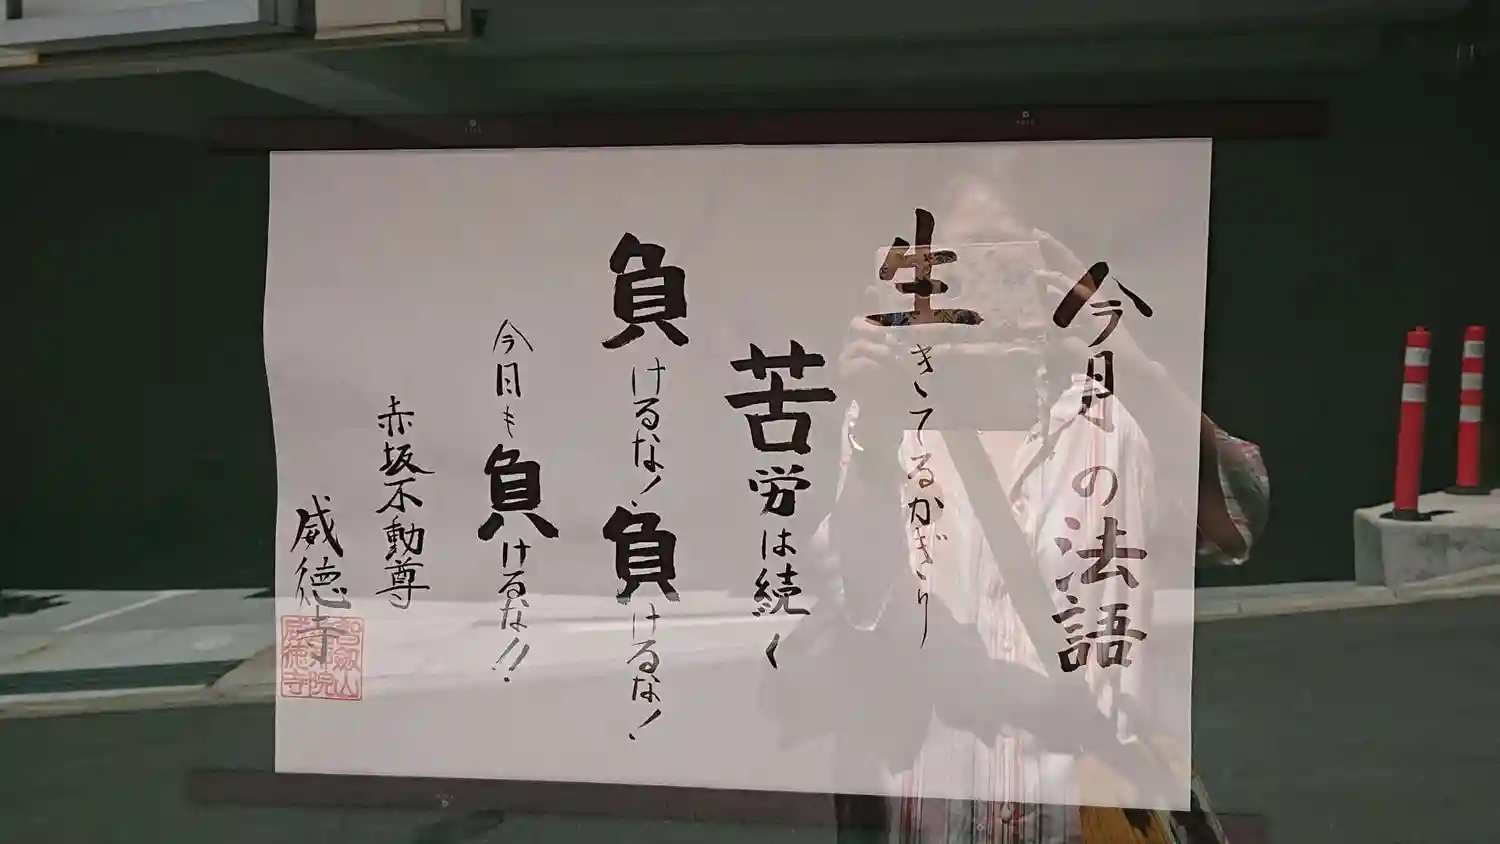 今月の法語
生きてるかぎり
苦労は続く
負けるな！負けるな！
今日も負けるな!!
赤坂不動尊
威徳寺
智剱山
院
威徳寺